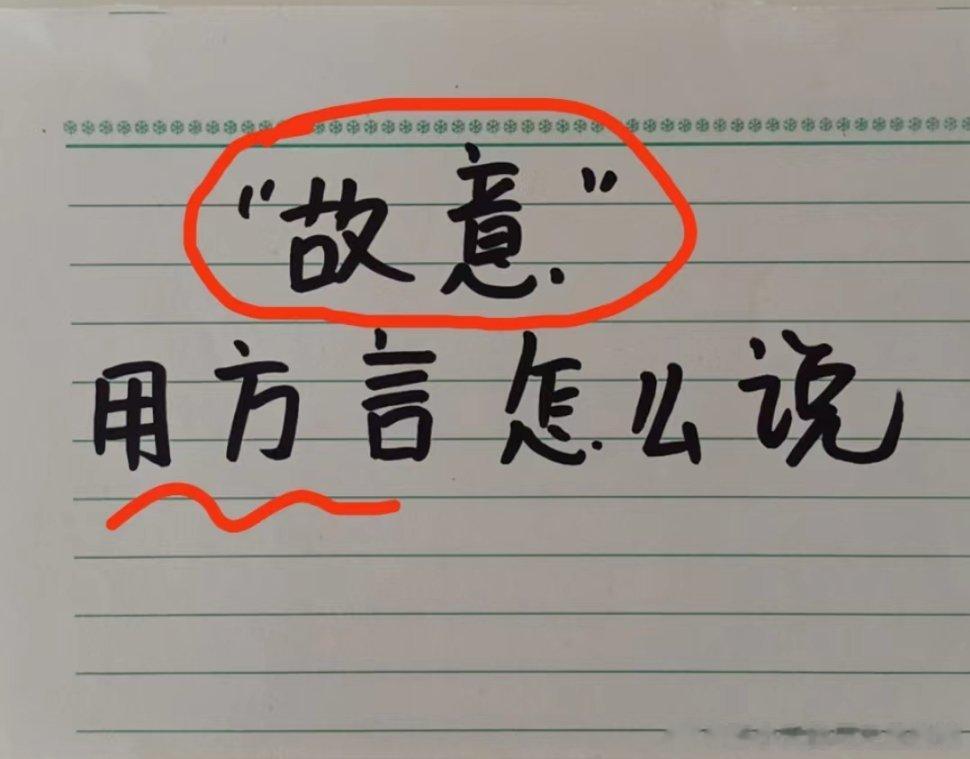 "故意"
用方言怎么说